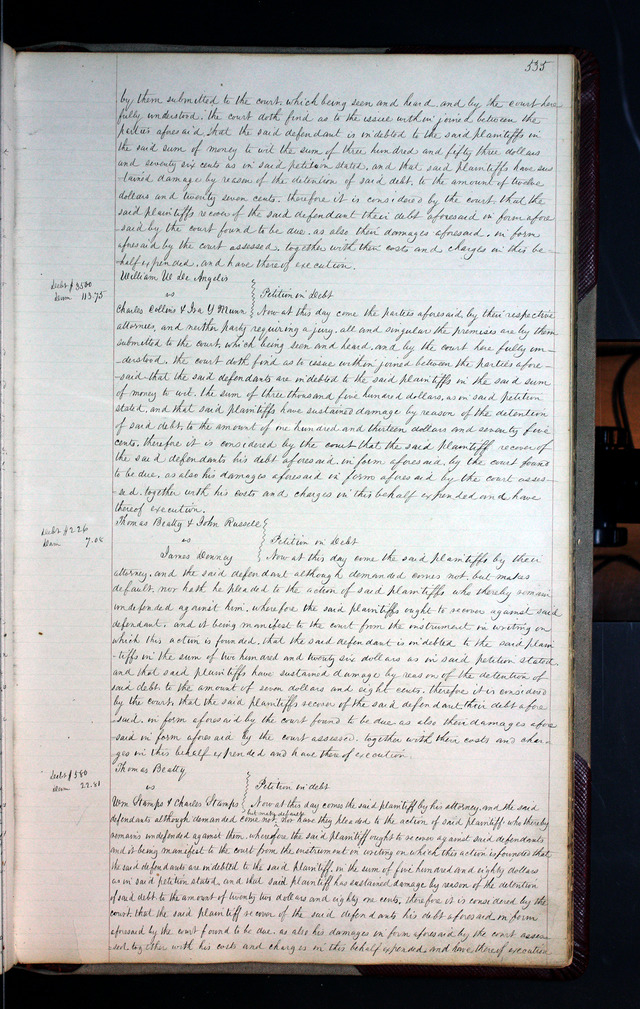 535
by them submitted to the court, which being seen and heard, and by the court here
fully understood, the court doth find as to the issue within joined between the
parties aforesaid, that the said defendant is indebted to the said plaintiffs in
the said sum of money to wit the sum of three hundred and fifty three dollars
and seventy six cents as in said petition stated, and that said plaintiffs have sus
-tained damage by reason of the detention of said debt, to the amount of twelve
dollars and twenty seven cents. therefore it is considered by the court, that the
said plaintiffs recover of the said defendant their debt aforesaid in form afore
said by the court found to be due, as also their damages aforesaid, in form
aforesaid by the court assessed, together with their costs and charges in this be-
half expended, and have thereof execution.
William W De Angelis
Debt $3500
vs Petition in Debt
Dam 113.75
Charles Collins & Ira Y Munn Now at this day come the parties aforesaid, by their respective
attornies, and neither party requiring a jury, all and singular the premises are by them
submitted to the court, which being seen and heard, and by the court here fully un-
-derstood, the court doth find as to issue within joined between the parties afore-
-said that the said defendants are indebted to the said plaintiffs in the said sum
of money to wit, the sum of three thousand five hundred dollars, as in said petition
stated, and that said plaintiffs have sustained damage by reason of the detention
of said debt, to the amount of one hundred and thirteen dollars and seventy five
cents, therefore it is considered by the court that the said plaintiff recover of
the said defendants his debt aforesaid, in form aforesaid, by the court found
to be due, as also his damages aforesaid in form aforesaid by the court asses-
sed, together with his costs and charges in this behalf expended and have
thereof execution.
Thomas Beatty & John Russell
Debt $226
vs Petition in Debt
Dam 7.08
James Denney Now at this day come the said plaintiffs by their
attorney, and the said defendant although demanded comes not, but makes
default, nor hath he pleaded to the action of said plaintiffs who thereby remain
undefended against him, wherefore the said plaintiffs ought to recover against said
defendant, and it being manifest to the court from the instrument in writing on
which this action is founded, that the said defendant is indebted to the said plain
-tiffs in the sum of two hundred and twenty six dollars as in said petition stated
and that said plaintiffs have sustained damage by reason of the detention of
said debt, to the amount of seven dollars and eight cents, therefore it is considered
by the court, that the said plaintiffs recover of the said defendant their debt afore
said, in form aforesaid by the court found to be due as also their damages afore
-said in form aforesaid by the court assessed, together with their costs and char-
ges in this behalf expended and have thereof execution.
Thomas Beatty
Debt $580
vs Petition in debt
Dam 22.81
Wm Stamps & Charles Stamps Now at this day comes the said plaintiff by his attorney, and the said
but make default
defendants although demanded come not, nor have they pleaded to the action of said plaintiff who thereby
remains undefended against them, wherefore the said plaintiff ought to recover against said defendants
and it being manifest to the court from the instrument in writing on which this action is founded that
the said defendants are indebted to the said plaintiff, in the sum of five hundred and eighty dollars
as in said petition stated, and that said plaintiff has sustained damage by reason of the detention
of said debt to the amount of twenty two dollars and eighty one cents, therefore it is considered by the
court, that the said plaintiff recover of the said defendants his debt aforesaid in form
aforesaid by the court found to be due, as also his damages in form aforesaid by the court asses
sed, together with his costs and charges in this behalf expended, and have thereof execution